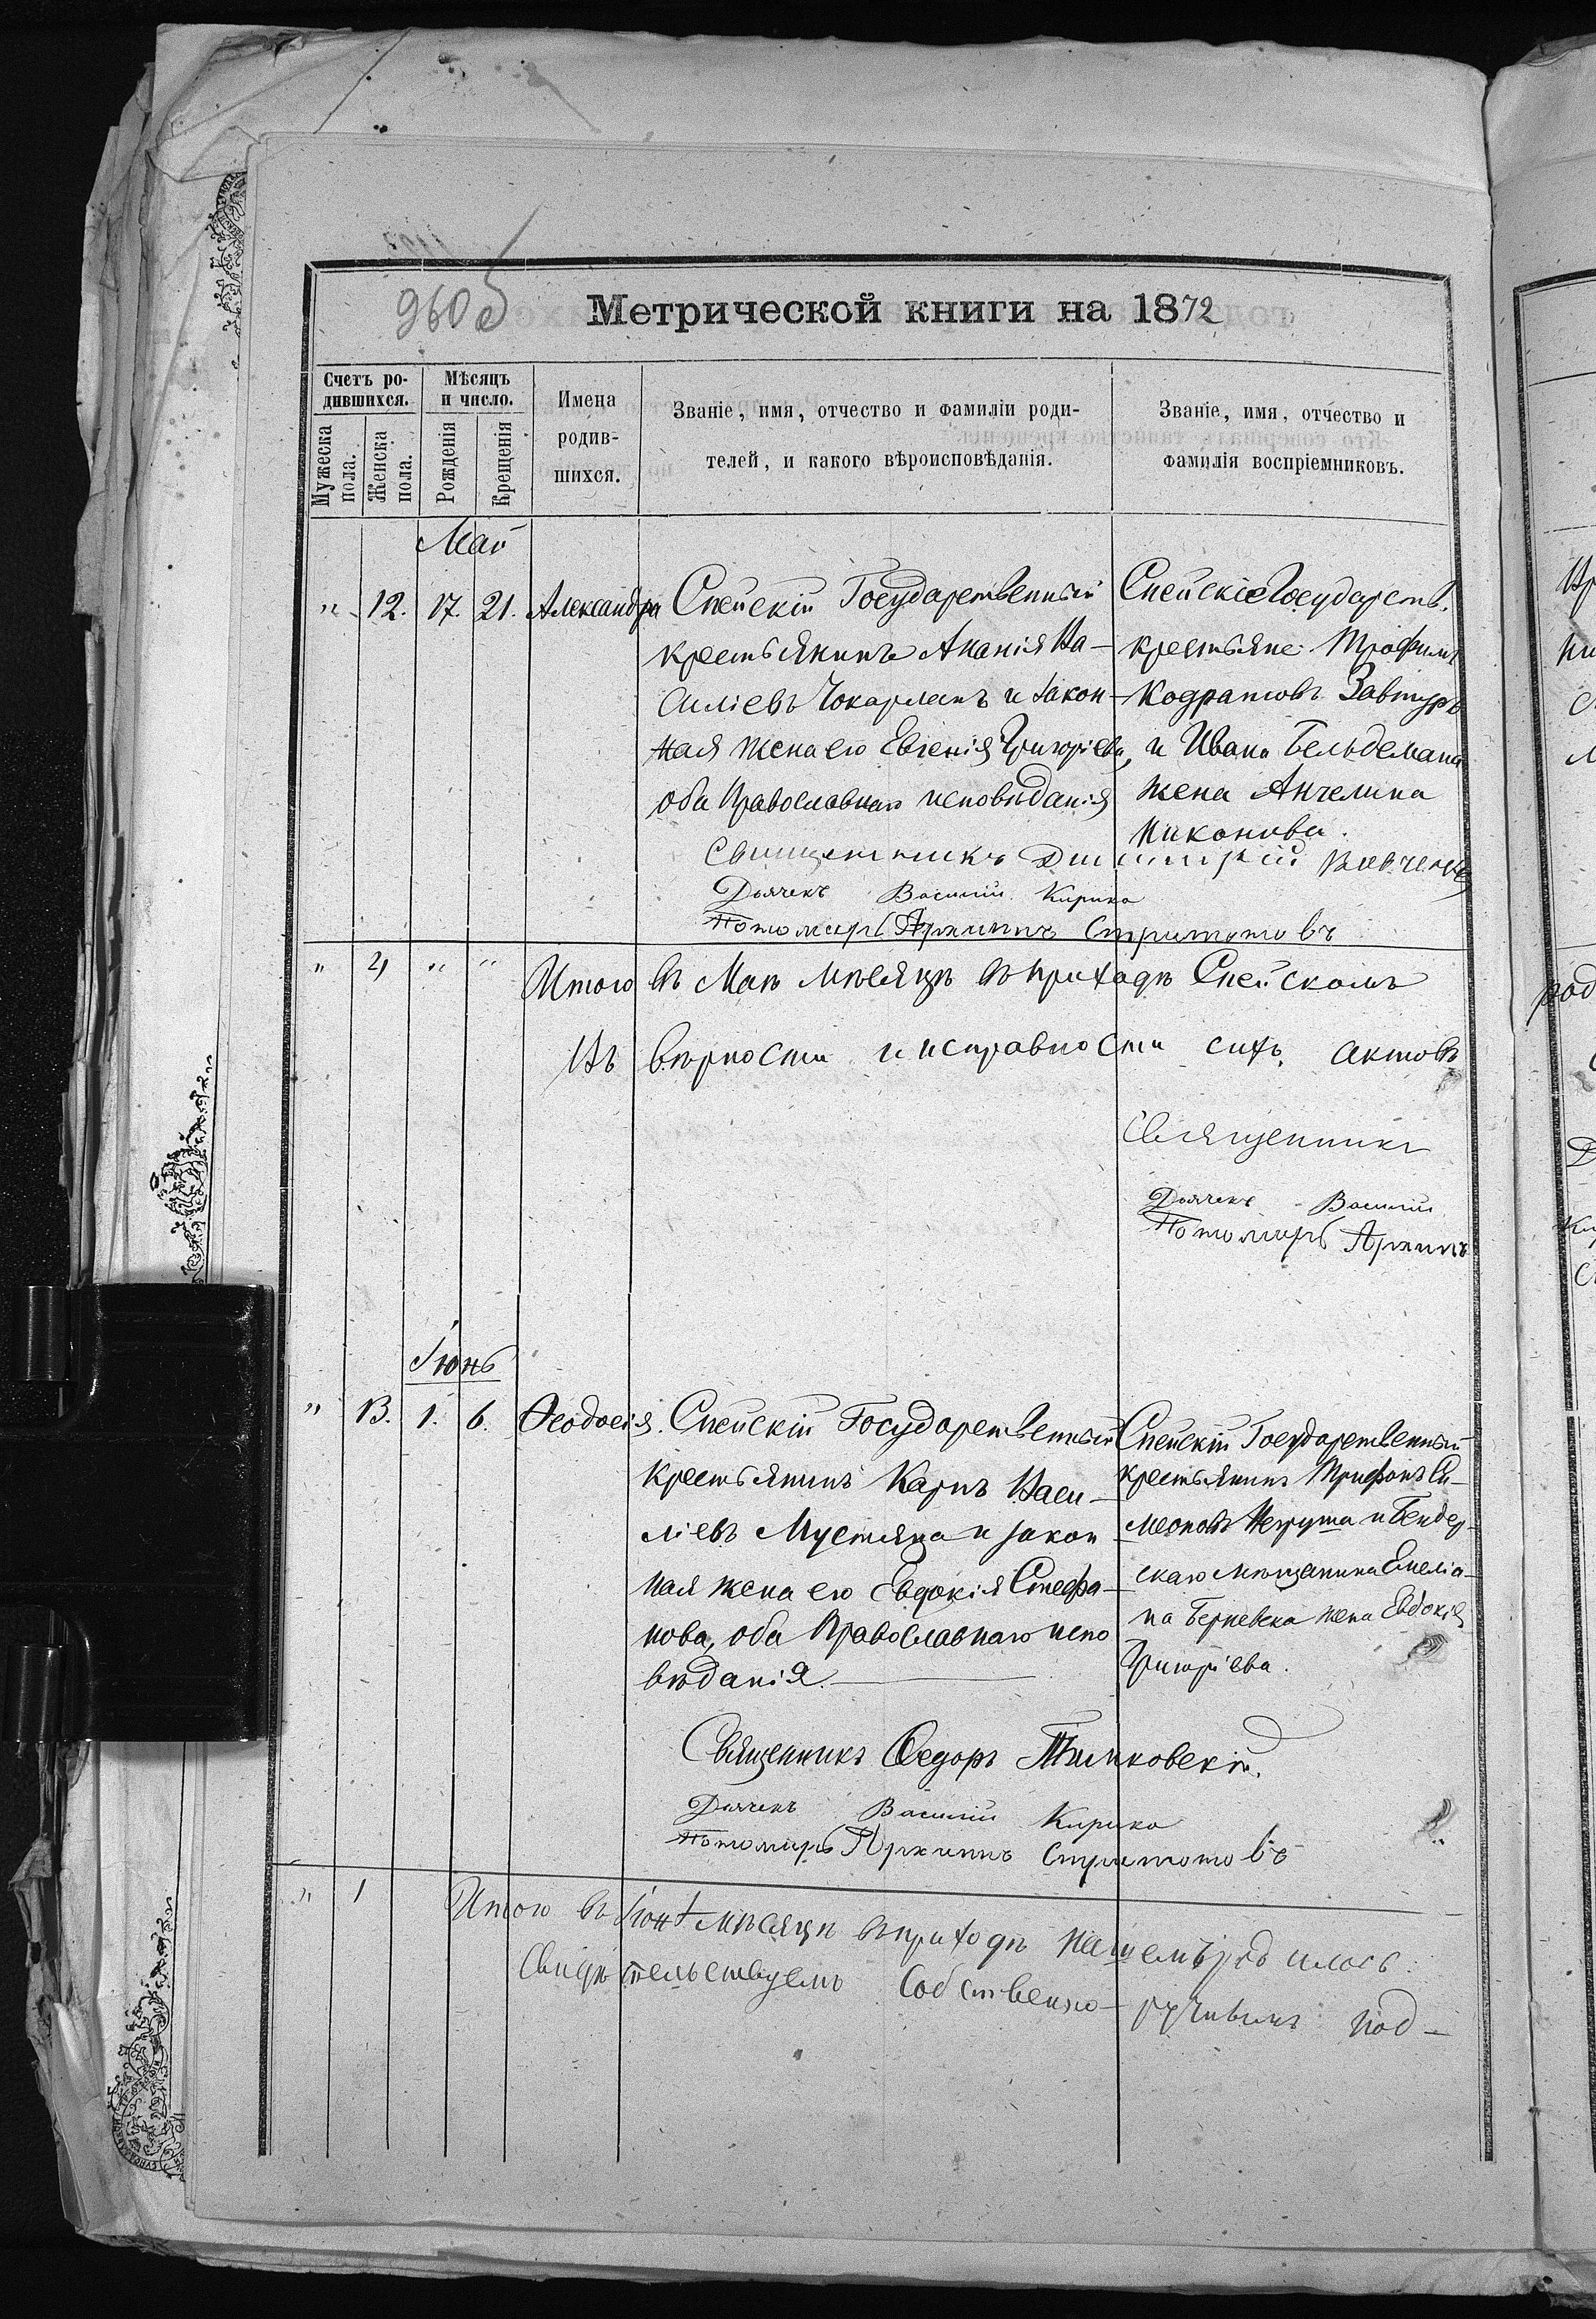 960 б
Метрической книги на 1872
Счетъ ро-
дившихся.
Мужеска пола.
Женска пола.
Мѣсяцъ
и число.
Рожденія
Крещенія
Имена
родив-
шихся.
Званіе, имя, отчество и фамиліи роди-
телей, и какого вѣроисповѣданія.
Званіе, имя, отчество и
фамилія воспріемниковъ.
Май
" 12. 17. 21. Александра
Спейскій Государственный
крестьянинъ Ананія Ва-
силіевъ Чокарланъ и закон-
ная жена его Евгенія Григоріева,
оба Православнаго исповѣданія
Спейскіе Государств.
крестьяне Трофимъ
Кодратовъ Завтуръ
и Ивана Бельдемана
жена Ангелина
Никонова.
Священникъ
Дьячекъ Василій Кирика
Пономарь Архиппъ
" 4 " "
Итого въ Маѣ мѣсяцѣ въ приходѣ Спейскомъ
Въ вѣрности и исправности сихъ актовъ
Священникъ
Дьячекъ Василій
Пономарь Архиппъ
Іюнь
" 13. 1. 6. Ѳеодосія.
Спейскій Государственный
крестьянинъ Карпъ Васи-
ліевъ Мустяца и закон
ная жена его Евдокія Стефа-
нова, оба Православнаго испо
вѣданія.
Спейскій Государственный
крестьянинъ Трифонъ Си-
меоновъ Негруша и Бендер-
скаго мѣщанина Емеліа-
на Берневека жена Евдокія
Григоріева.
Священникъ Ѳедоръ
Дьячекъ Василій Кирика
Пономарь Архиппъ
" 1
Итого въ Іюнѣ мѣсяцѣ въ приходѣ нашемъ родилось.
Свидѣтельствуемъ Собственно-ручнымъ под-